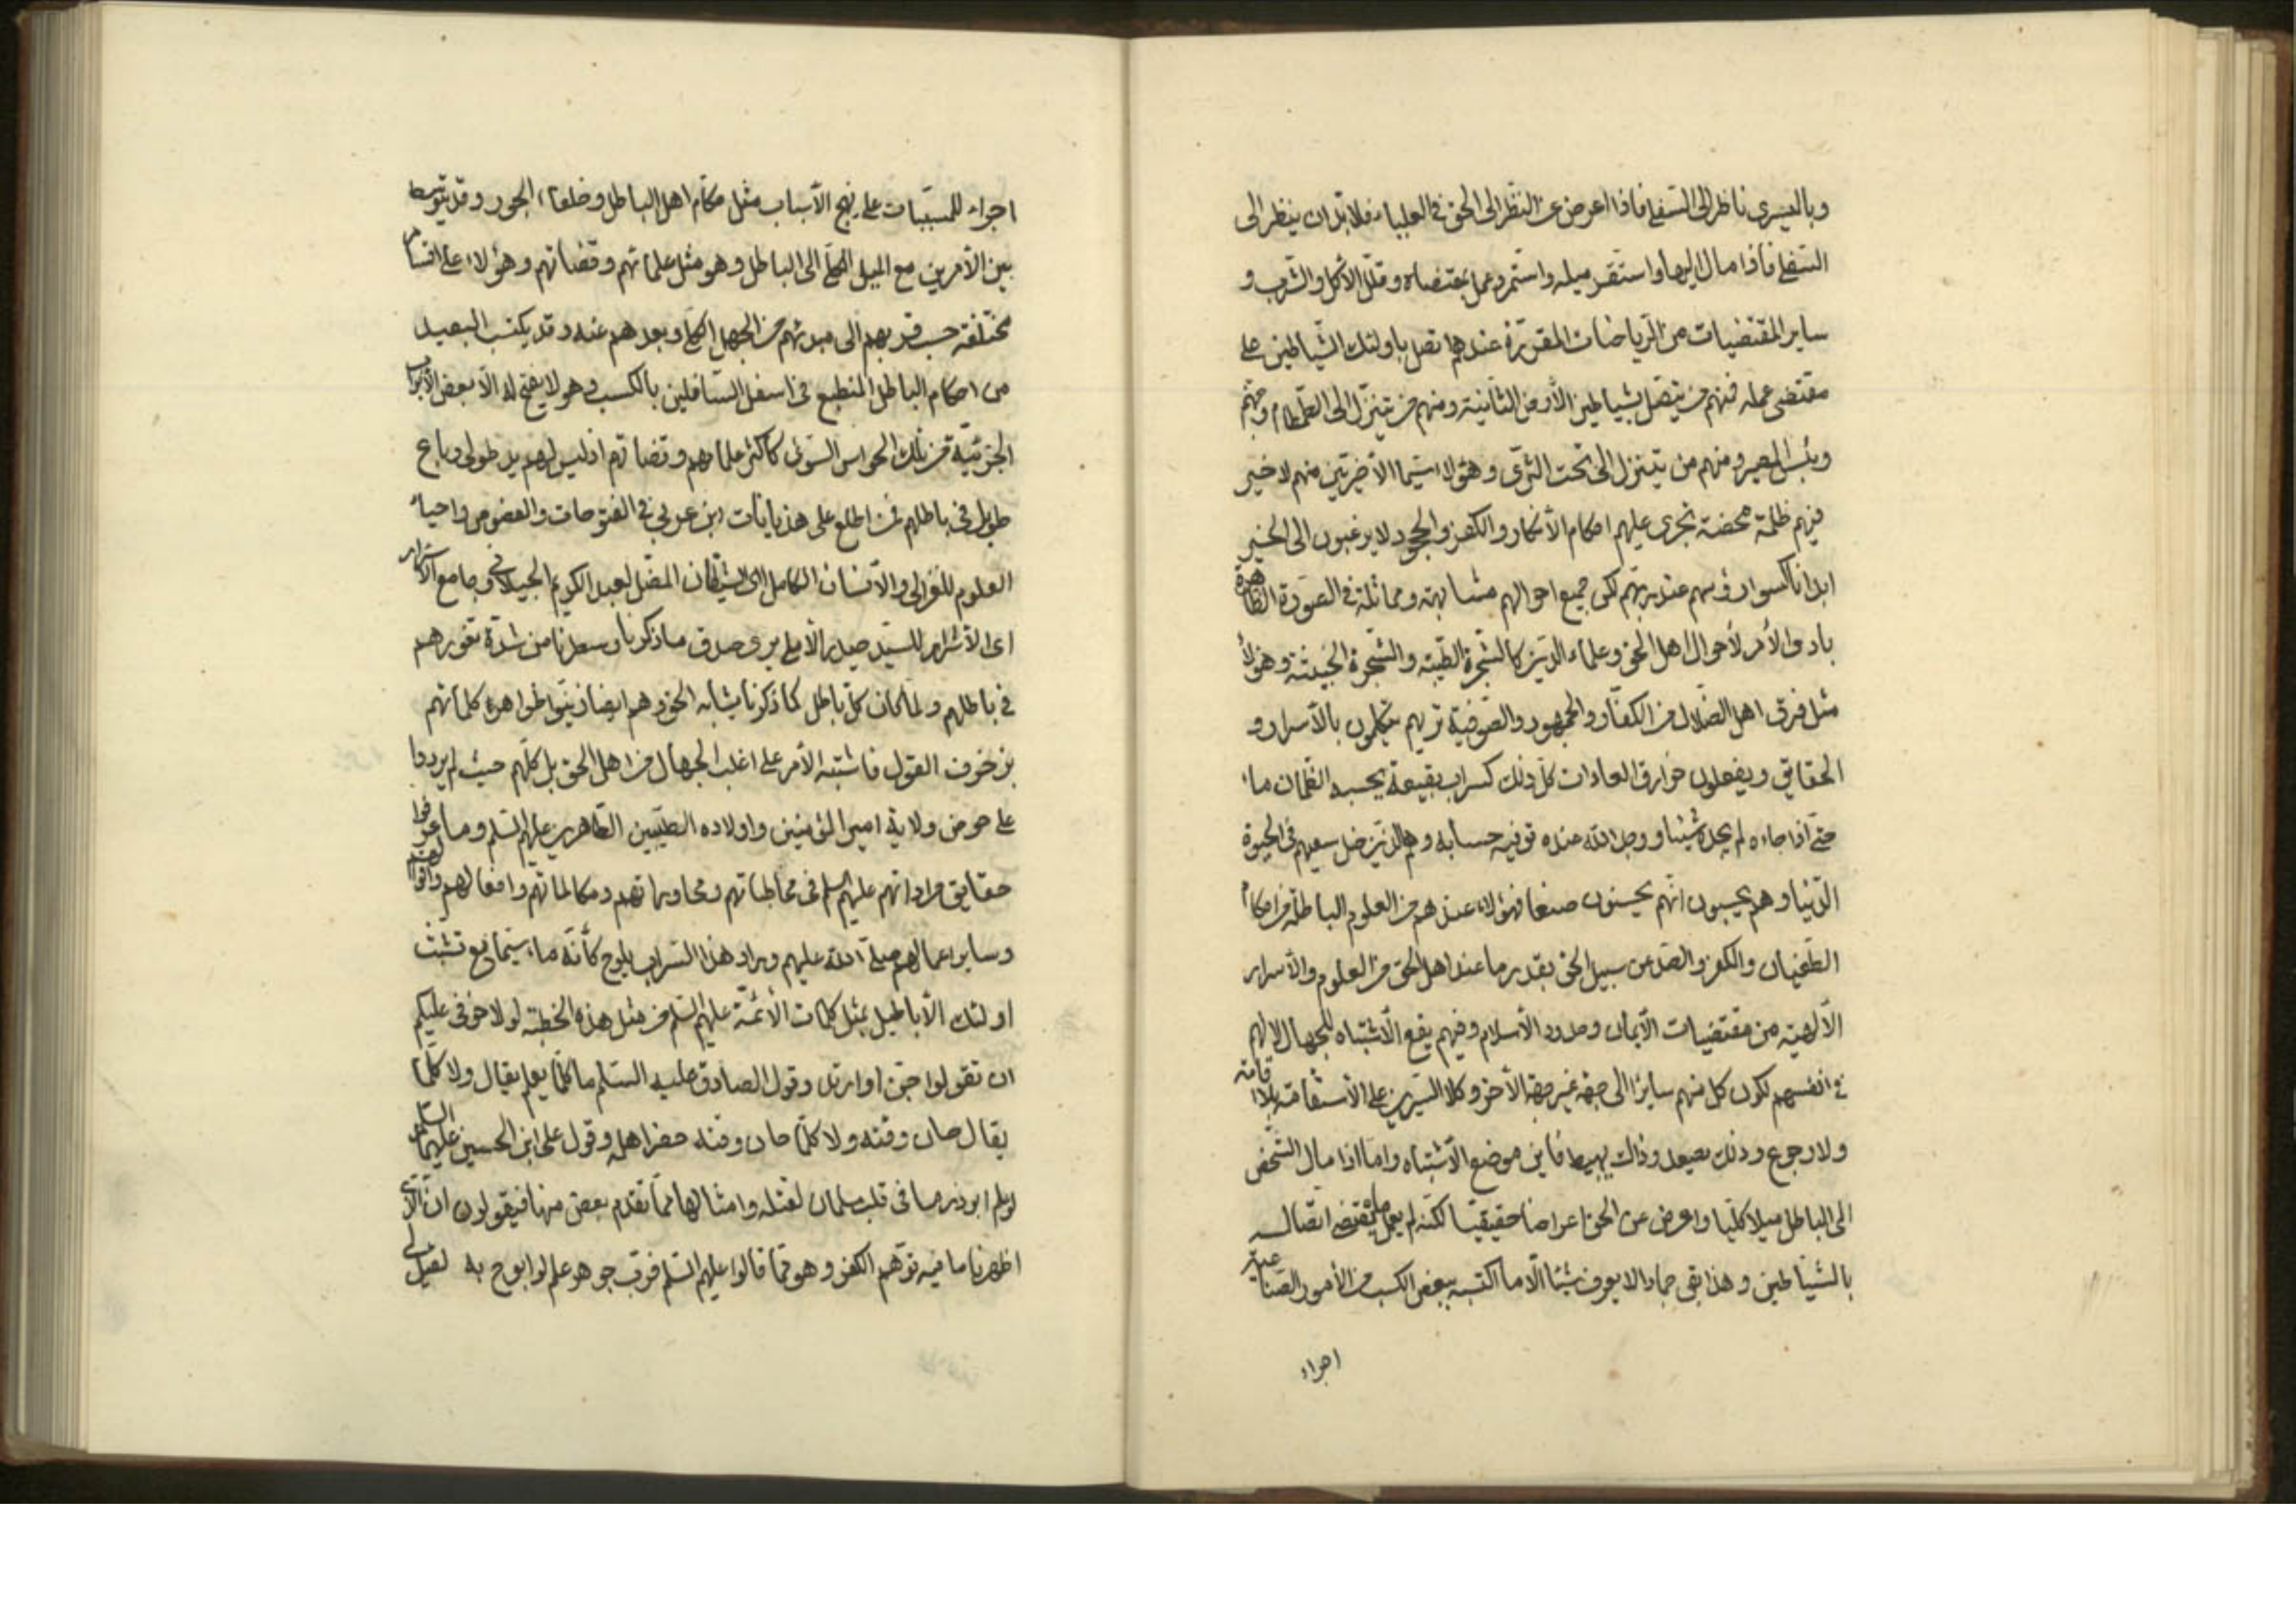 وباليسرى ناظر الى السفلى فاذا اعرض عن النظر الى الحق في العليا، فلابد ان ينظر الى
السفلى فاذا مال اليها واستقر ميله واستمر وعمل بمقتضاه وقلّل الاكل والشرب و
ساير المقتضيات من الرياضات المقررة عندهم اتصل باولئك الشياطين على
مقتضى عمله فمنهم من يتصل بشياطين الارض الثانية ومنهم من يتنزل الى الطمطام وجهنم
وبئس المصير ومنهم من يتنزل الى تحت الثرى وهؤلاء سيّما الأخيرين منهم لا خير
فيهم ظلمة محضة تجرى عليهم احكام الأنكار والكفر والجحود لا يرغبون الى الخير
ابدا ناكسوا رؤسهم عند ربهم لكن جميع احوالهم مشابهة ومماثلة في الصورة الظاهرة
بادى الأمر لأحوال اهل الحق وعلماء الدين كالشجرة الطيبة والشجرة الخبيثة وهؤلاء
مثل فرق اهل الضلال من الكفار والجمهور والصوفية تريهم يتكلمون بالأسرار و
الحقايق ويفعلون خوارق العادات كل ذلك كسراب بقيعة يحسبه الظمان ماء
حتى اذا جاءه لم يجده شيئا ووجد الله عنده فوفيه حسابه وهم الذين ضل سعيهم في الحيوة
الدنيا وهم يحسبون انهم يحسنون صنعا فهؤلاء عندهم من العلوم الباطلة من احكام
الطغيان والكفر والصد عن سبيل الحق بقدر ما عند اهل الحق من العلوم والأسرار
الألهية من مقتضيات الأيمان وحدود الأسلام وفيهم يقع الأشتباه للجهال لا لهم
في انفسهم لكون كل منهم سايرا الى جهة غير جهة الأخر وكلا السيرين على الأستقامة بلا اقامة
ولا رجوع وذلك يصعد وذاك يهبط فاين موضع الأشتباه واما اذا مال الشخص
الى الباطل ميلا كليا واعرض عن الحق اعراضا حقيقيا لكنه لم يعمل ما يقتضى اتصاله
بالشياطين وهذا بقى جمادا لا يعرف شيئا الا ما اكتسبه ببعض الكسب من الأمور الصناعية
اجراء
اجراء للمسببات على نهج الأسباب مثل حكام اهل الباطل وخلفاء الجور وقد يتوسط
بين الأمرين مع الميل الكلى الى الباطل وهو مثل علمائهم وقضاتهم وهؤلاء على اقسام
مختلفة حسب قربهم الى مبدئهم من الجهل الكلى وبعدهم عنه وقد يكتسب البعيد
من احكام الباطل المنطبع في اسفل السافلين بالكسب وهو لا يفتح له الا بعض الأبواب
الجزئية من تلك الحواس السوئى كاكثر علمائهم وقضاتهم اذ ليس لهم يد طولى وباع
طويل في باطلهم فمن اطلع على هذيانات ابن عربي في الفتوحات والفصوص واحياء
العلوم للغزالى والأنسان الكامل اى الشيطان المضل لعبد الكريم الجيلاني وجامع الأسرار
اى الأشرار للسيد حيدر الأملى يرى صدق ما ذكرنا وسطرنا من شدة تغورهم
في باطلهم ولما كان كل باطل كما ذكرنا يشابه الحق وهم ايضا زينوا ظواهره كلماتهم
بزخرف القول فاشتبه الأمر على اغلب الجهال من اهل الحق بل كلهم حيث لم يردوا
على حوض ولاية امير المؤمنين واولاده الطيبين الطاهرين عليهم السلم وما عرفوا
حقايق مراداتهم عليهم السلم في مخاطباتهم ومحاوراتهم ومكالماتهم وافعالهم واقوالهم
وساير اعمالهم صلى الله عليهم وبراد هذا السراب يلوح كأنه ماء سيما مع تشبث
اولئك الأباطيل بمثل كلمات الأئمة عليهم السلم من مثل هذه الخطبة لولا خوفى عليكم
ان تقولوا جن او ارتد وقول الصادق عليه السلم ما كلما يعلم يقال ولا كلما
يقال حان وقته ولا كلما حان وقته حضر اهله وقول على ابن الحسين عليهما السلم
لو علم ابوذر ما في قلب سلمان لقتله وامثالها مما تقدم بعض منها فيقولون ان الذى
اظهرنا ما فيه توهم الكفر وهو مما قالوا عليهم السلم فرب جوهر علم لو ابوح به لقيل لى